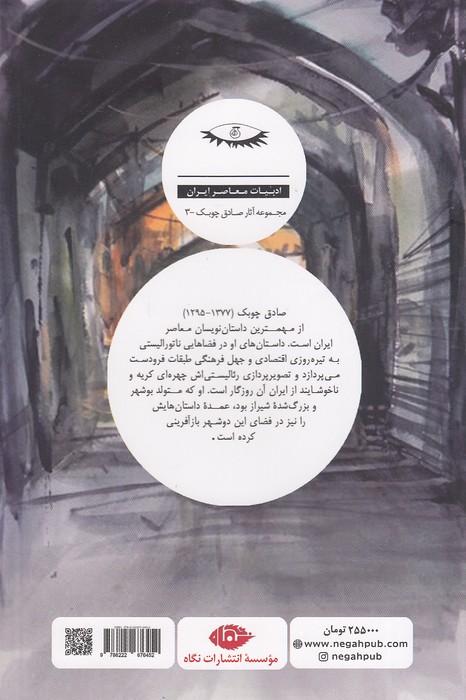 ادبیات معاصر ایران
مجموعه آثار صادق چوبک -۳
صادق چوبک (۱۳۷۷-۱۲۹۵)
از مهمترین داستان‌نویسان معاصر
ایران است. داستان‌های او در فضاهایی ناتورالیستی
به تیره‌روزی اقتصادی و جهل فرهنگی طبقات فرودست
می‌پردازد و تصویرپردازی رئالیستی‌اش چهره‌ای کریه و
ناخوشایند از ایران آن روزگار است. او که متولد بوشهر
و بزرگ‌شدهٔ شیراز بود، عمدهٔ داستان‌هایش
را نیز در فضای این دوشهر بازآفرینی
کرده است.
۲۵۵۰۰۰ تومان
www.negahpub.com
negahpub
مؤسسهٔ انتشارات نگاه
9 786222 676452